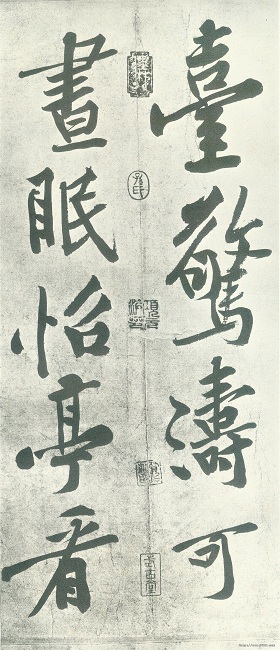 臺驚濤可
晝眠怡亭看